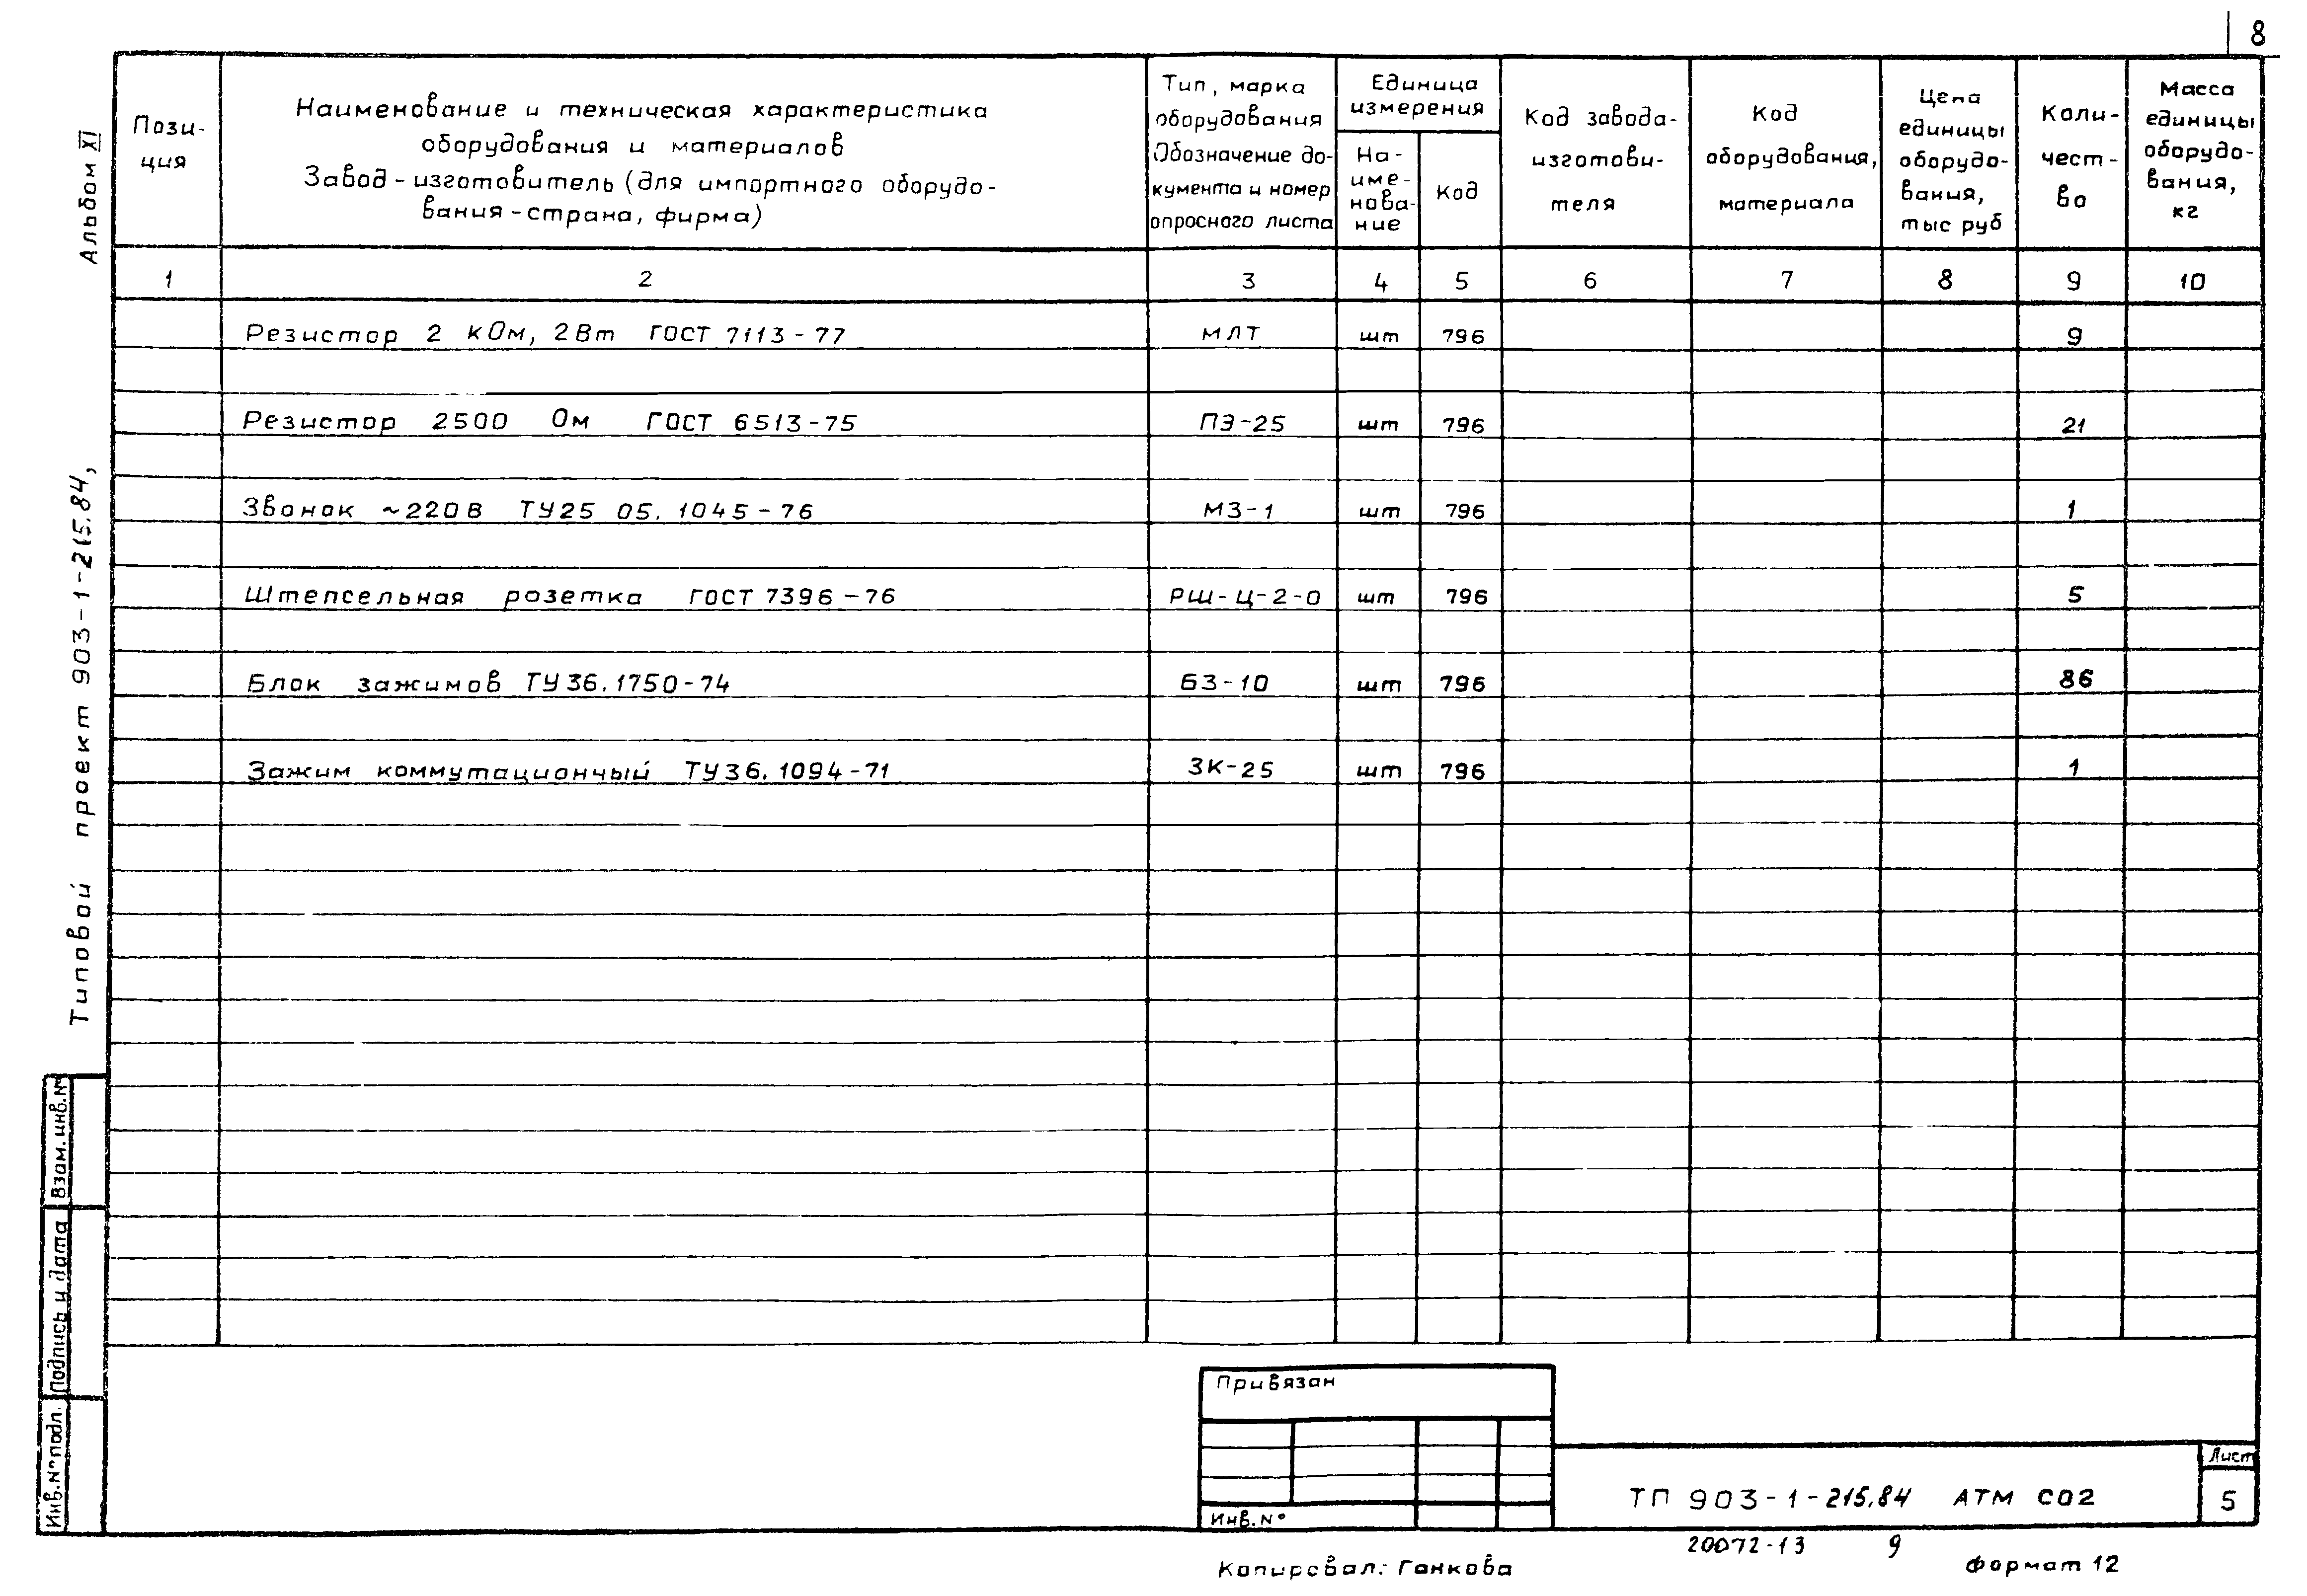 8
Пози-
ция
Наименование и техническая характеристика
оборудования и материалов
Завод-изготовитель (для импортного оборудо-
вания-страна, фирма)
Тип, марка
оборудования
Обозначение до-
кумента и номер
опросного листа
Единица
измерения
На-
име-
нова-
ние
Код
Код завода-
изготови-
теля
Код
оборудования,
материала
Цена
единицы
оборудо-
вания,
тыс руб
Коли-
чест-
во
Масса
единицы
оборудо-
вания,
кг
1 2 3 4 5 6 7 8 9 10
Резистор 2 кОм, 2Вт ГОСТ 7113-77 МЛТ шт 796 9
Резистор 2500 Ом ГОСТ 6513-75 ПЭ-25 шт 796 21
Звонок ~220В ТУ25 05.1045-76 МЗ-1 шт 796 1
Штепсельная розетка ГОСТ 7396-76 РШ-Ц-2-0 шт 796 5
Блок зажимов ТУ36.1750-74 БЗ-10 шт 796 86
Зажим коммутационный ТУ36.1094-71 ЗК-25 шт 796 1
Альбом XI
Типовой проект 903-1-215.84,
Взам.инв.№
Подпись и дата
Инв.№подл.
Привязан
Инв.№
ТП 903-1-215.84 АТМ СО2
Лист
5
20072-13 9
Копировал: Ганкова
Формат 12